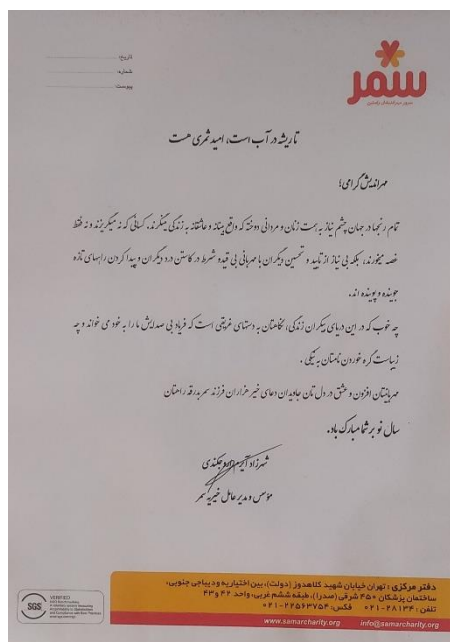 تاریخ:
شماره:
پیوست:
سمر
تا ریشه در آب است، امید ثمری هست
مهراندیش گرامی؛
تمام رنجها در جهان چشم نیاز به همت زنان و مردانی دوخته که واقع بینانه و عاشقانه به زندگی مینگرند، کسانی که نه میگریزند و نه فقط
غصه میخورند، بلکه بی نیاز از تایید و تحسین دیگران با مهربانی بی قید و شرط در کاستن درد دیگران و پیدا کردن راههای تازه
جوینده و پوینده اند.
چه خوب که در این دریای بیکران زندگی، نگاهتان به دستهای غریقی است که فریاد بی صدایش ما را به خود می خواند و چه
زیباست گره خوردن نامتان به نیکی .
مهربانیتان افزون و عشق در دل تان جاویدان دعای خیر هزاران فرزند سمر بدرقه راهتان
سال نو بر شما مبارک باد.
شهرزاد
موسس و مدیر عامل خیریه سمر
SGS
VERIFIED
دفتر مرکزی : تهران خیابان شهید کلاهدوز (دولت)، بین اختیاریه و دیباجی جنوبی،
ساختمان پزشکان ۴۵۰ شرقی (صدرا)، طبقه ششم غربی، واحد ۴۲ و ۴۳
تلفن : ۲۸۱۳۴-۰۲۱ فکس: ۲۲۵۶۳۷۵۴-۰۲۱
www.samarcharity.org info@samarcharity.org